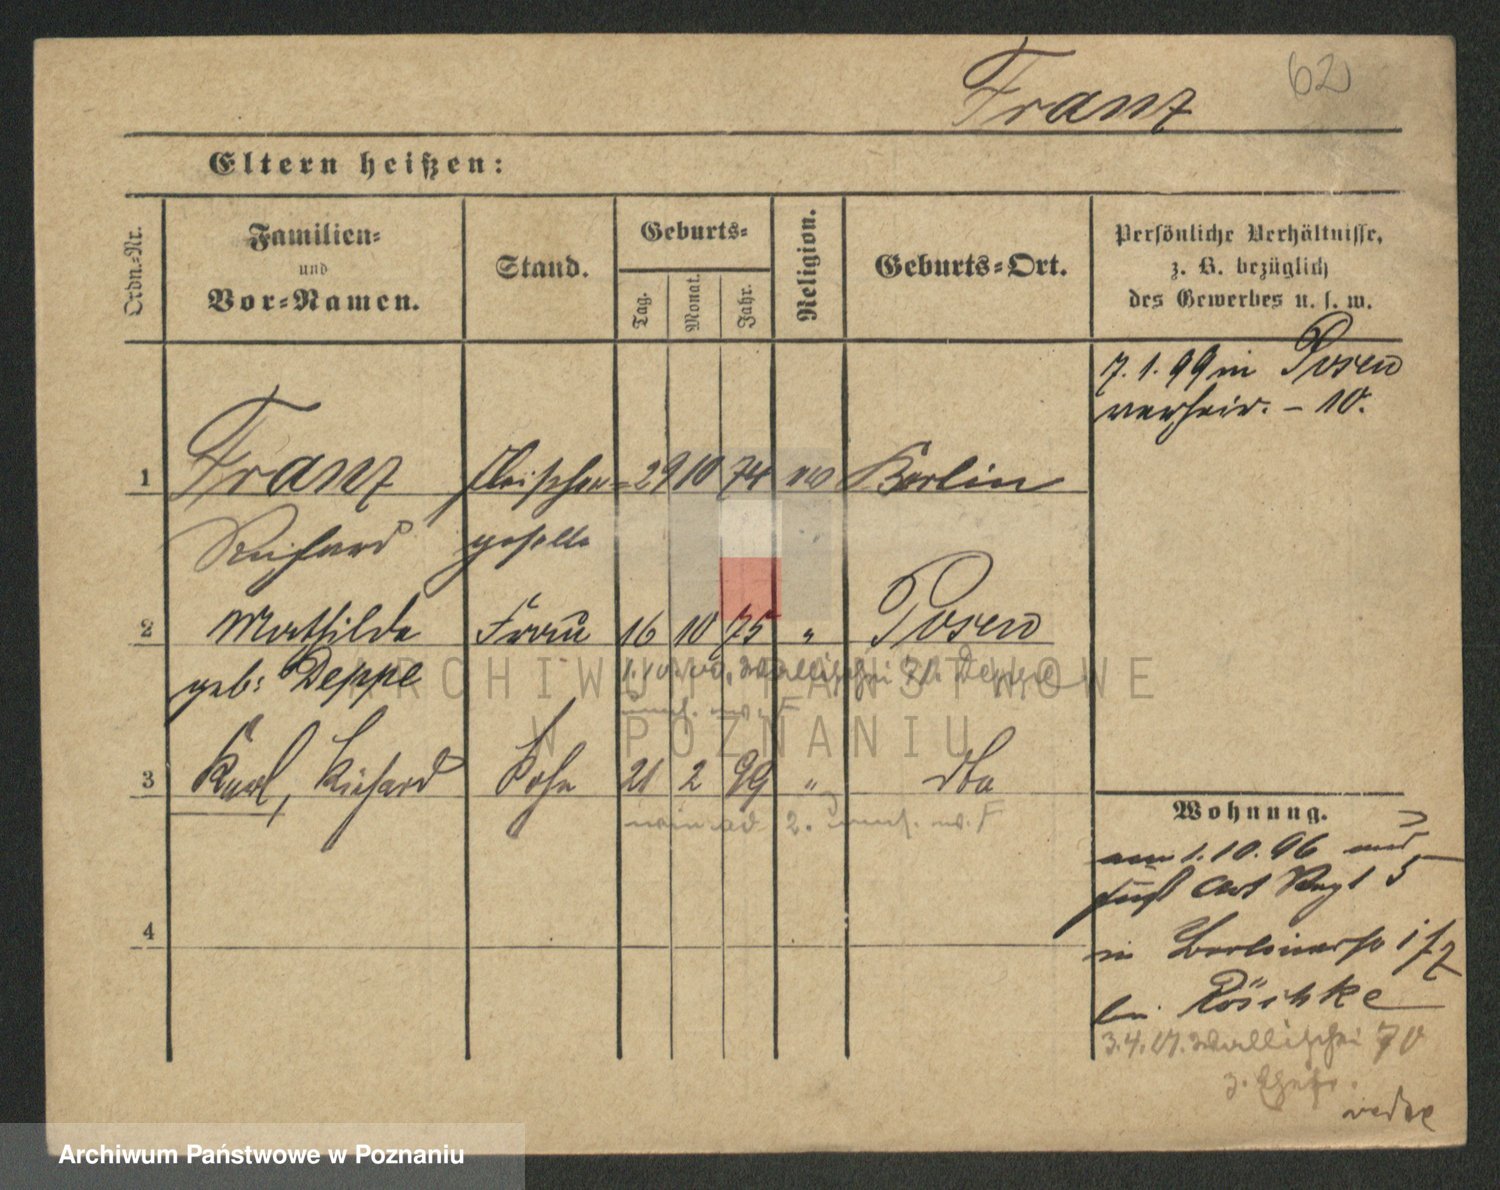 Franz 62
Eltern heißen:
Ordn.-Nr. Familien- und Vor-Namen. Stand. Geburts- Tag. Monat. Jahr. Religion. Geburts-Ort. Persönliche Verhältnisse, z. B. bezüglich des Gewerbes u. s. w.
7. 1. 99 in Posen
verheir. - 10.
1 Franz Fleischer- 29 10 74 ev Berlin
Richard geselle
2 Mathilde Frau 16 10 75 " Posen
geb: Deppe
Wallischei 71. Deppe
3 Karl, Richard Sohn 21 2 99 " dto
2.
Wohnung.
am 1. 10. 96
5
in Berlinerstr
bei Röschke
3. 4. Wallischei 70
z. Ehefr.
4
ARCHIWUM PAŃSTWOWE
W POZNANIU
Archiwum Państwowe w Poznaniu